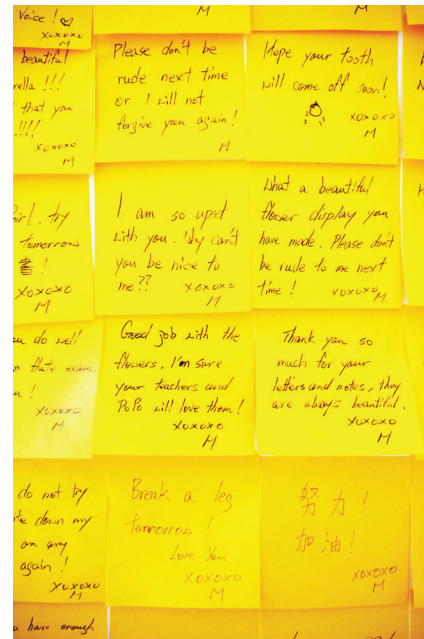 Voice !
xoxoxo
M
beautiful
rella !!!
that you
!!!!
xoxoxo
M
Please don't be
rude next time
or I will not
forgive you again !
M
Hope your tooth
will come off soon!
xoxoxo
M
Girl. try
tomorrow
書 !
xoxoxo
M
I am so upset
with you. Why can't
you be nice to
me??
xoxoxo
M
What a beautiful
flower display you
have made. Please don't
be rude to me next
time !
xoxoxo
M
do well
flute exam.
!
xoxoxo
M
Good job with the
flowers. I'm sure
your teachers and
PoPo will love them!
xoxoxo
M
Thank you so
much for your
letters and notes, they
are always beautiful.
xoxoxo
M
do not try
down my
on any
again !
xoxoxo
M
Break a leg
tomorrow !
Love You
xoxoxo
M
努力!
加油!
xoxoxo
M
have enough